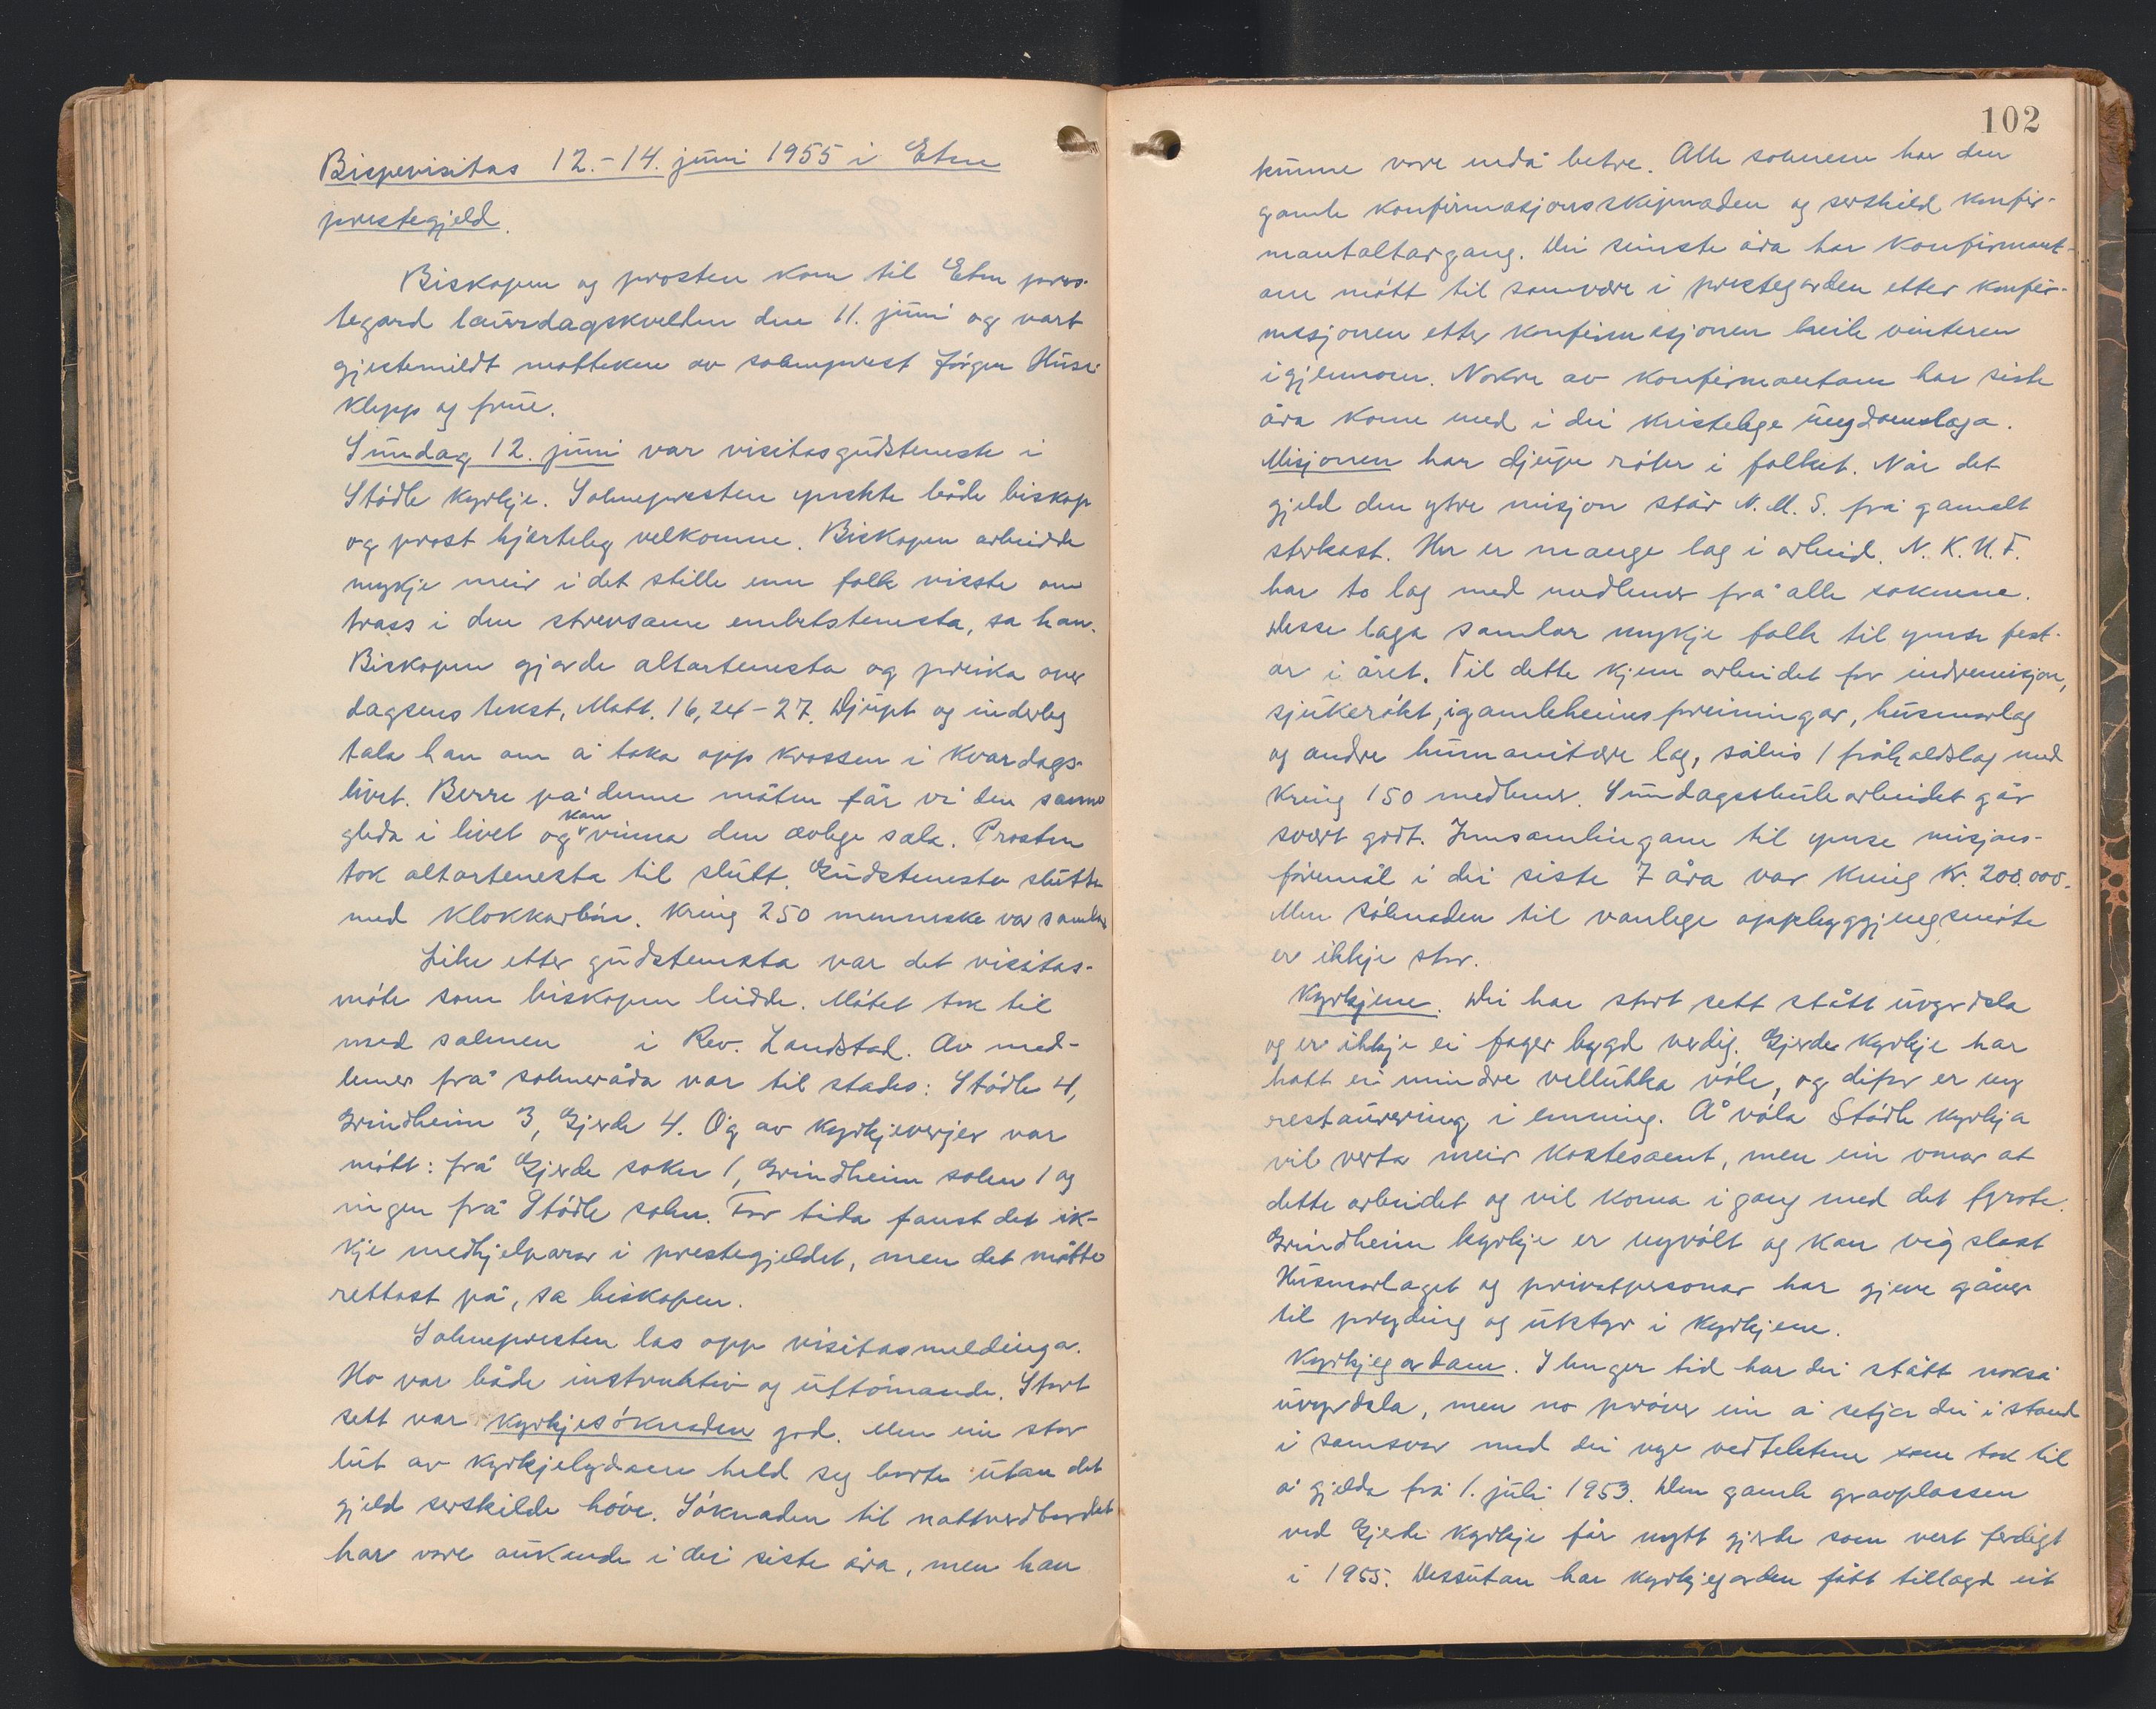 Bispevisitas 12.-14. juni 1955 i Etne
prestegjeld.
Biskopen og prosten kom til Etne pres-
tegard laurdagskvelden den 11. juni og vart
gjestemildt mottekne av sokneprest Jørgen Huse-
klepp og frue.
Sundag 12. juni var visitasgudsteneste i
Stødle kyrkje. Soknepresten ynskte både biskop
og prost hjarteleg velkomne. Biskopen arbeidde
mykje meir i det stille enn folk visste om
trass i den strevsame embetstenesta, sa han.
Biskopen gjorde altartenesta og preika over
dagsens tekst, Matt. 16, 24-27. Djupt og inderleg
tala han om å taka opp krossen i kvardags-
livet. Berre på denne måten får vi den sanne
gleda i livet og kan vinna den ævlege sæla. Prosten
tok altartenesta til slutt. Gudstenesta slutta
med klokkarbøn. Kring 250 menneske var samla.
Like etter gudstenesta var det visitas-
møte som biskopen leidde. Møtet tok til
med salmen i Rev. Landstad. Av med-
lemer frå sokneråda var til stades: Stødle 4,
Grindheim 3, Gjerde 4. Og av kyrkjeverjer var
møtt: frå Gjerde sokn 1, Grindheim sokn 1 og
ingen frå Stødle sokn. For tida fanst det ik-
kje medhjelparar i prestegjeldet, men det måtte
rettast på, sa biskopen.
Soknepresten las opp visitasmeldinga.
Ho var både instruktiv og uttømande. Stort
sett var kyrkjesøknaden god. Men ein stor
lut av kyrkjelydane held seg borte utan det
gjeld serskilde høve. Søknaden til nattverdbordet
har vore aukande i dei siste åra, men han
102
kunne vore endå betre. Alle soknene har den
gamle konfirmasjonsskipnaden og serskild konfir-
mantaltargang. Dei seinste åra har konfirmant-
ane møtt til samvære i prestegarden etter konfir-
masjonen etter konfirmasjonen heile vinteren
igjennom. Nokre av konfirmantane har siste
åra kome med i dei kristelege ungdomslaga.
Misjonen har djupe røter i folket. Når det
gjeld den ytre misjon står N.M.S. frå gamalt
sterkast. Her er mange lag i arbeid. N.K.U.F.
har to lag med medlemer frå alle soknene.
Desse laga samlar mykje folk til ymse fest-
ar i året. Til dette kjem arbeidet for indremisjon,
sjukerøkt, i gamleheimsforeiningar, husmorlag
og andre humanitære lag, såleis 1 fråhaldslag med
kring 150 medlemer. Sundagsskulearbeidet går
svært godt. Innsamlingane til ymse misjons-
føremål i dei siste 7 åra var kring kr. 200.000.
Men søknaden til vanlege oppbyggjingsmøte
er ikkje stor.
Kyrkjene. Dei har stort sett stått uvyrdsla
og er ikkje ei fager bygd verdig. Gjerde kyrkje har
hatt ei mindre vellukka vøle, og difor er ny
restaurering i emning. Å vøla Stødle kyrkja
vil verta meir kostesamt, men ein vonar at
dette arbeidet og vil koma i gang med det fyrste.
Grindheim kyrkje er nyvølt og kan vigslast
Husmorlaget og privatpersonar har gjeve gåver
til pryding og utstyr i kyrkjene.
Kyrkjegardane. I lenger tid har dei stått nokså
uvyrdsla, men no prøver ein å setja dei i stand
i samsvar med dei nye vedtektene som tok til
å gjelda frå 1. juli 1953. Den gamle gravplassen
ved Gjerde kyrkje får nytt gjerde som vert ferdigt
i 1955. Dessutan har kyrkjegarden fått tillagd eit